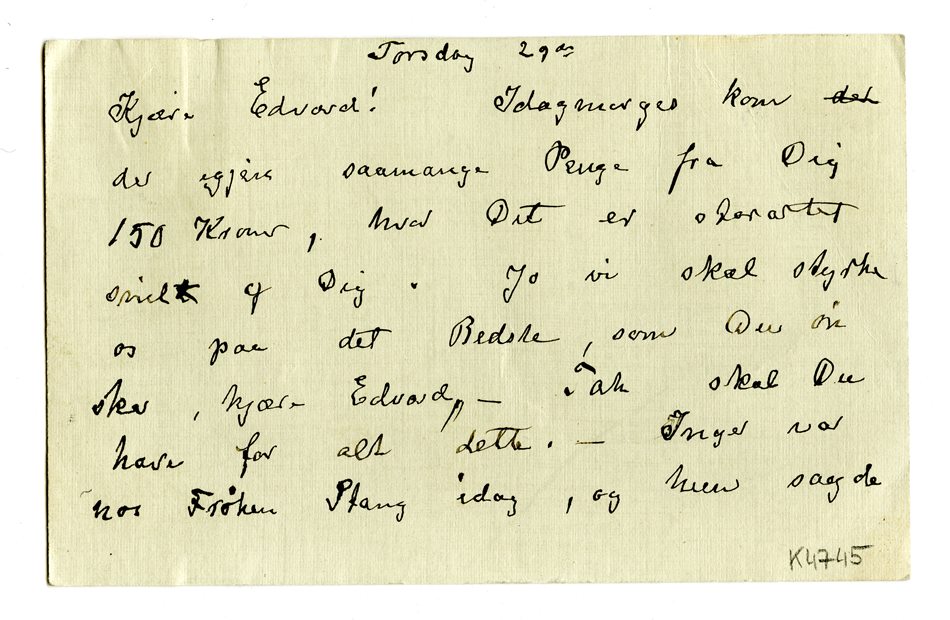 Torsdag 29de
Kjære Edvard! Idagmorges kom der
der igjen saamange Penge fra Dig
150 Kroner, hvor Det er storartet
snilt af Dig. Jo vi skal styrke
os paa det Bedste, som Du øn
sker, kjære Edvard, — Tak skal Du
have for alt dette. — Inger var
hos Frøken Stang idag, og hun sagde
K4745